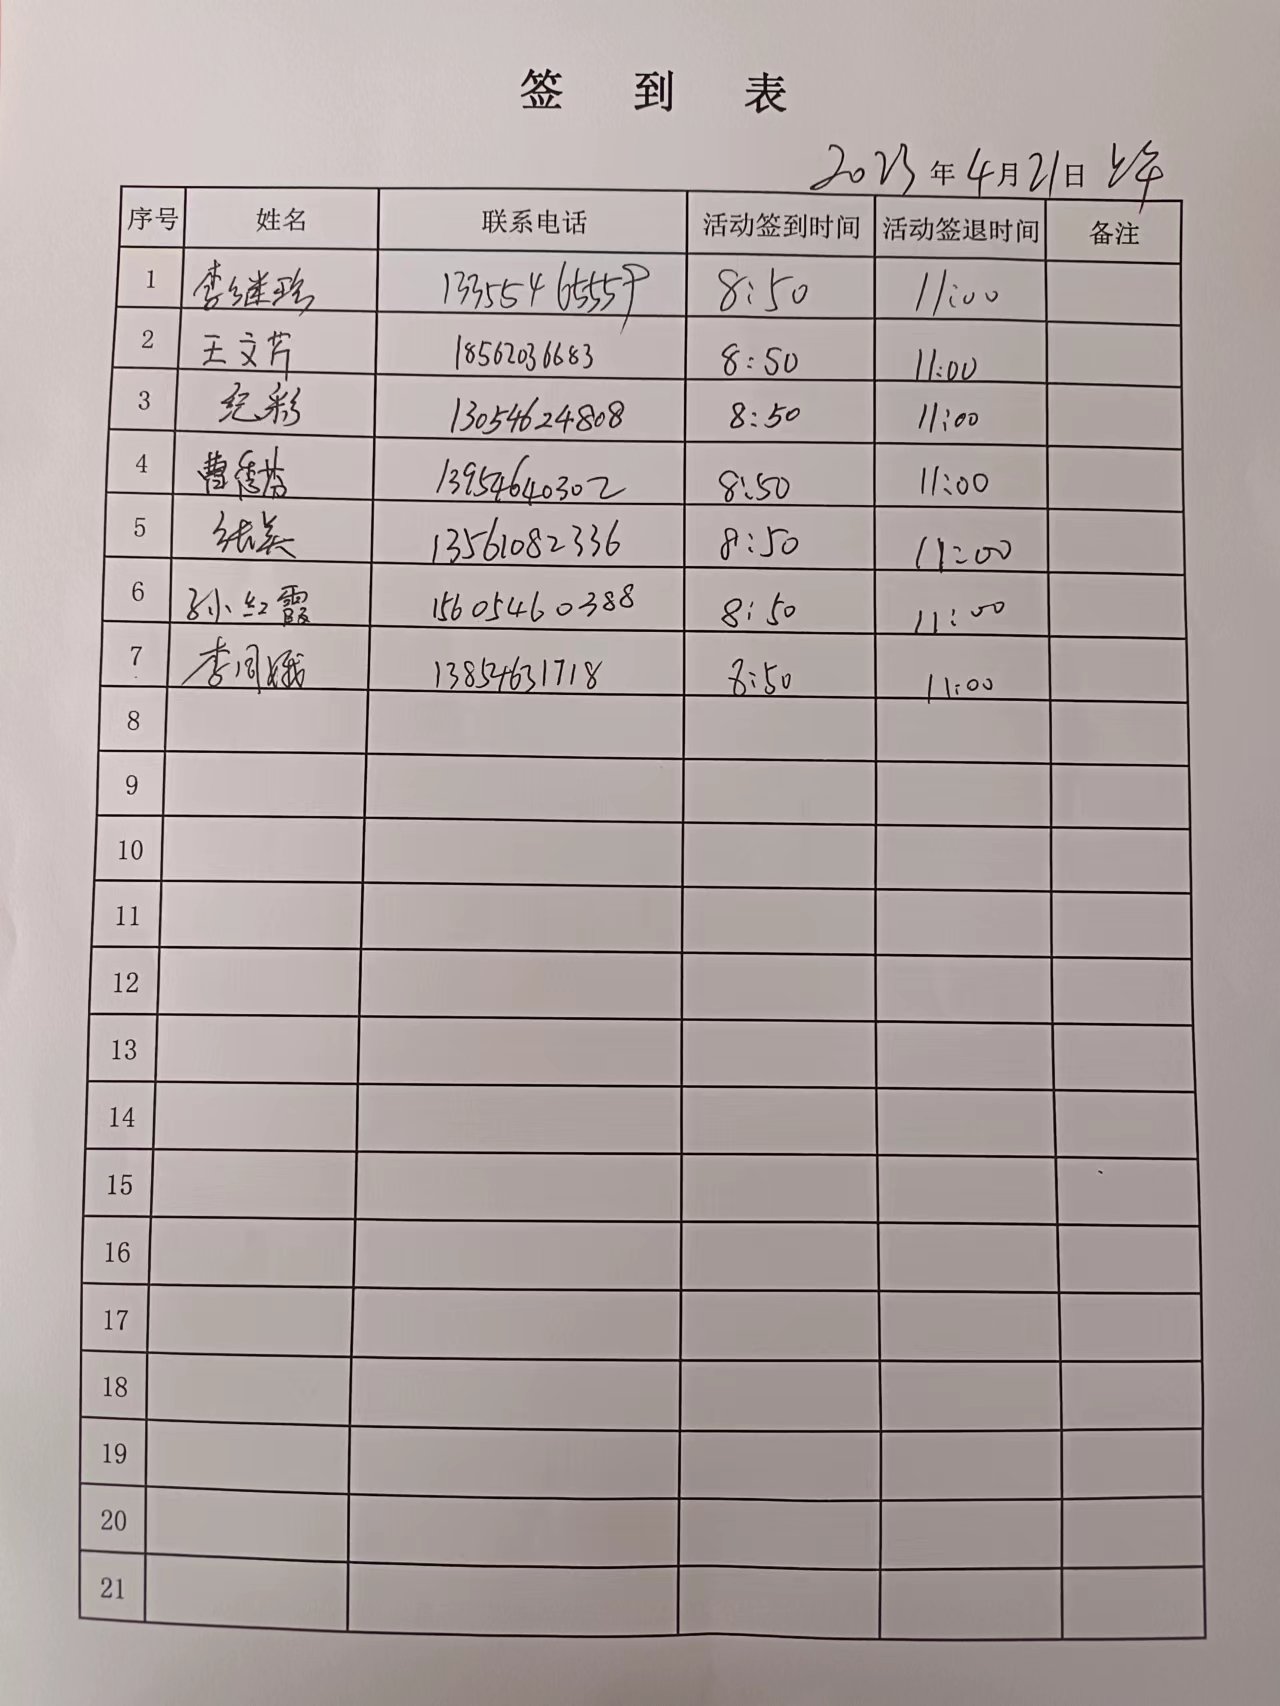 签 到 表
2023 年 4 月 21 日 上午
序号 姓名 联系电话 活动签到时间 活动签退时间 备注
1 李继珍 13355465559 8:50 11:00
2 王文芹 18562036683 8:50 11:00
3 纪彩 13054624808 8:50 11:00
4 曹秀芬 13954640302 8:50 11:00
5 张美 13561082336 8:50 11:00
6 孙红霞 15605460388 8:50 11:00
7 李同娥 13854631718 8:50 11:00
8
9
10
11
12
13
14
15
16
17
18
19
20
21